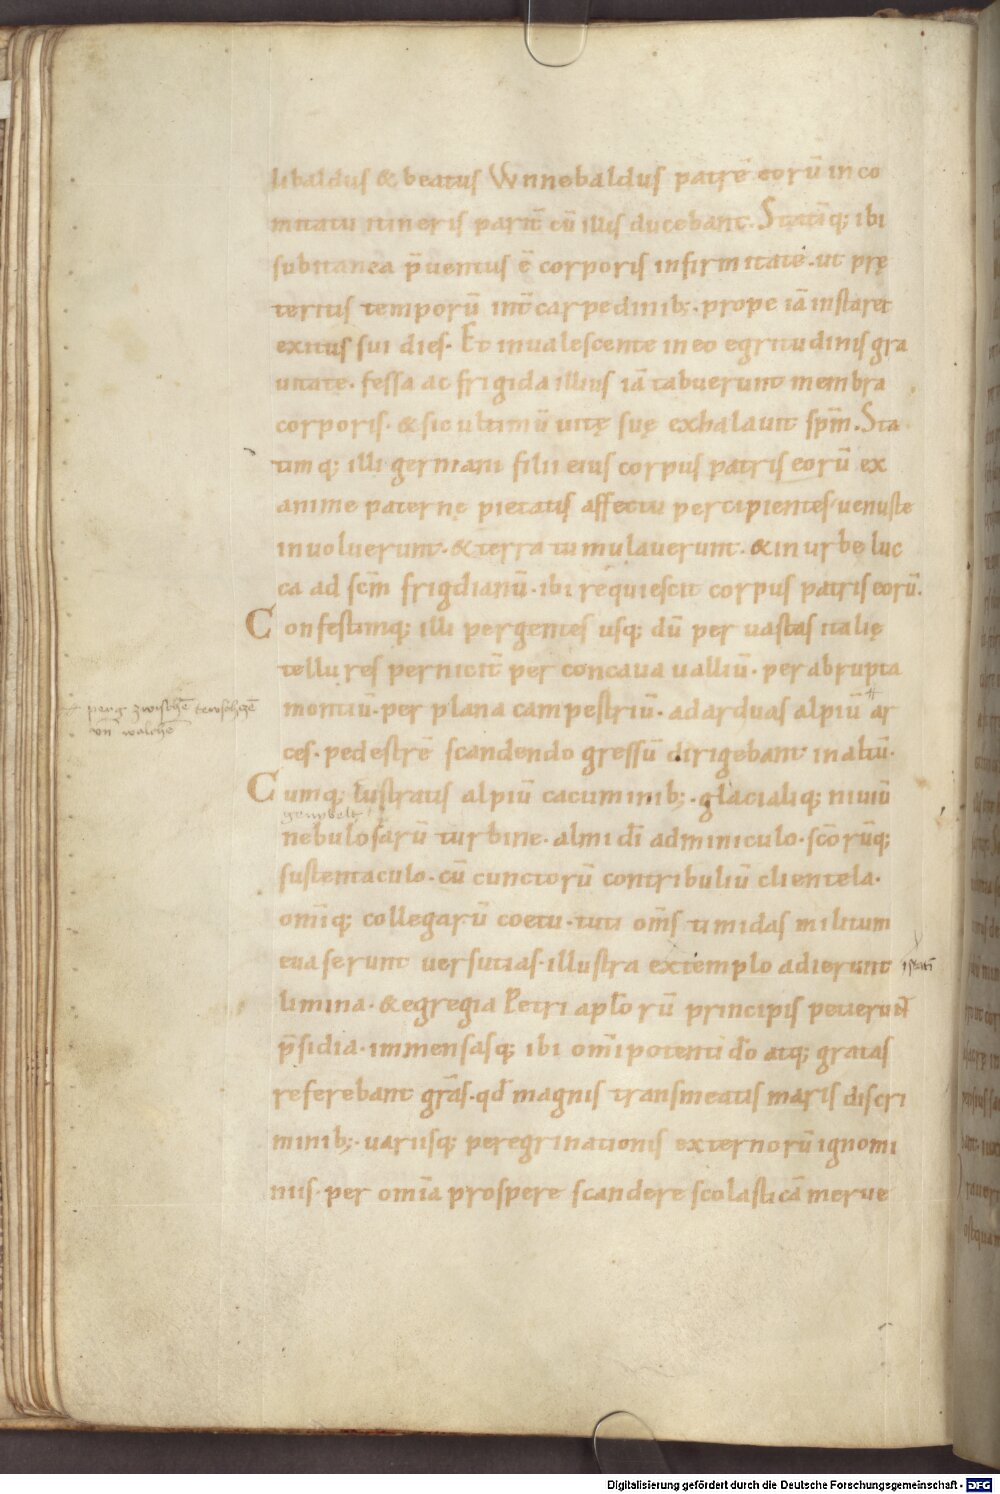 libaldus & beatus Wnnebaldus patrē eorū in co
mitatu itineris parit̄ cū illis ducebant. Statīq; ibi
subitanea p̄uentus ē corporis infirmitate. ut prę
teritis temporū int̄carpedinib;. prope iā instaret
exitus sui dies. Et invalescente in eo egritudinis gra
uitate. fessa ac frigida illius iā tabuerunt membra
corporis. & sic ultimū uitę suę exhalauit spm̄. Sta
timq; illi germani filii eius corpus patris eorū ex
anime paternę pietatis affectu percipientes venuste
inuoluerunt. & terra tumulaverunt. & in urbe luc
ca ad scm̄ frigdianū. ibi requiescit corpus patris eorū.
Confestimq; illi pergentes usq; dū per uastas italię
tellures pernicit̄ per concaua valliū. per abrupta
montiū. per plana campestriū. ad arduas alpiū ar
perg zwischē tewschzē
vn̄ walchē
ces. pedestrē scandendo gressū dirigebant in altū.
Cumq; lustratis alpiū cacuminib;. glacialiq; niuiū
genybelt
nebulosarū turbine. almi dī adminiculo. scōrūq;
sustentaculo. cū cunctorū contribuliū clientela.
omīq; collegarū coetu. tuti om̄s timidas militum
evaserunt versutias. illustra extemplo adierunt
limina. & egregia Petri aplorū principis petierunt
p̄sidia. immensasq; ibi om̄ipotenti do atq; gratas
referebant grās. qd magnis transmeatis maris discri
minib;. uariisq; peregrinationis externorū ignomi
niis. per omīa prospere scandere scolasticā merue
Digitalisierung gefördert durch die Deutsche Forschungsgemeinschaft - DFG